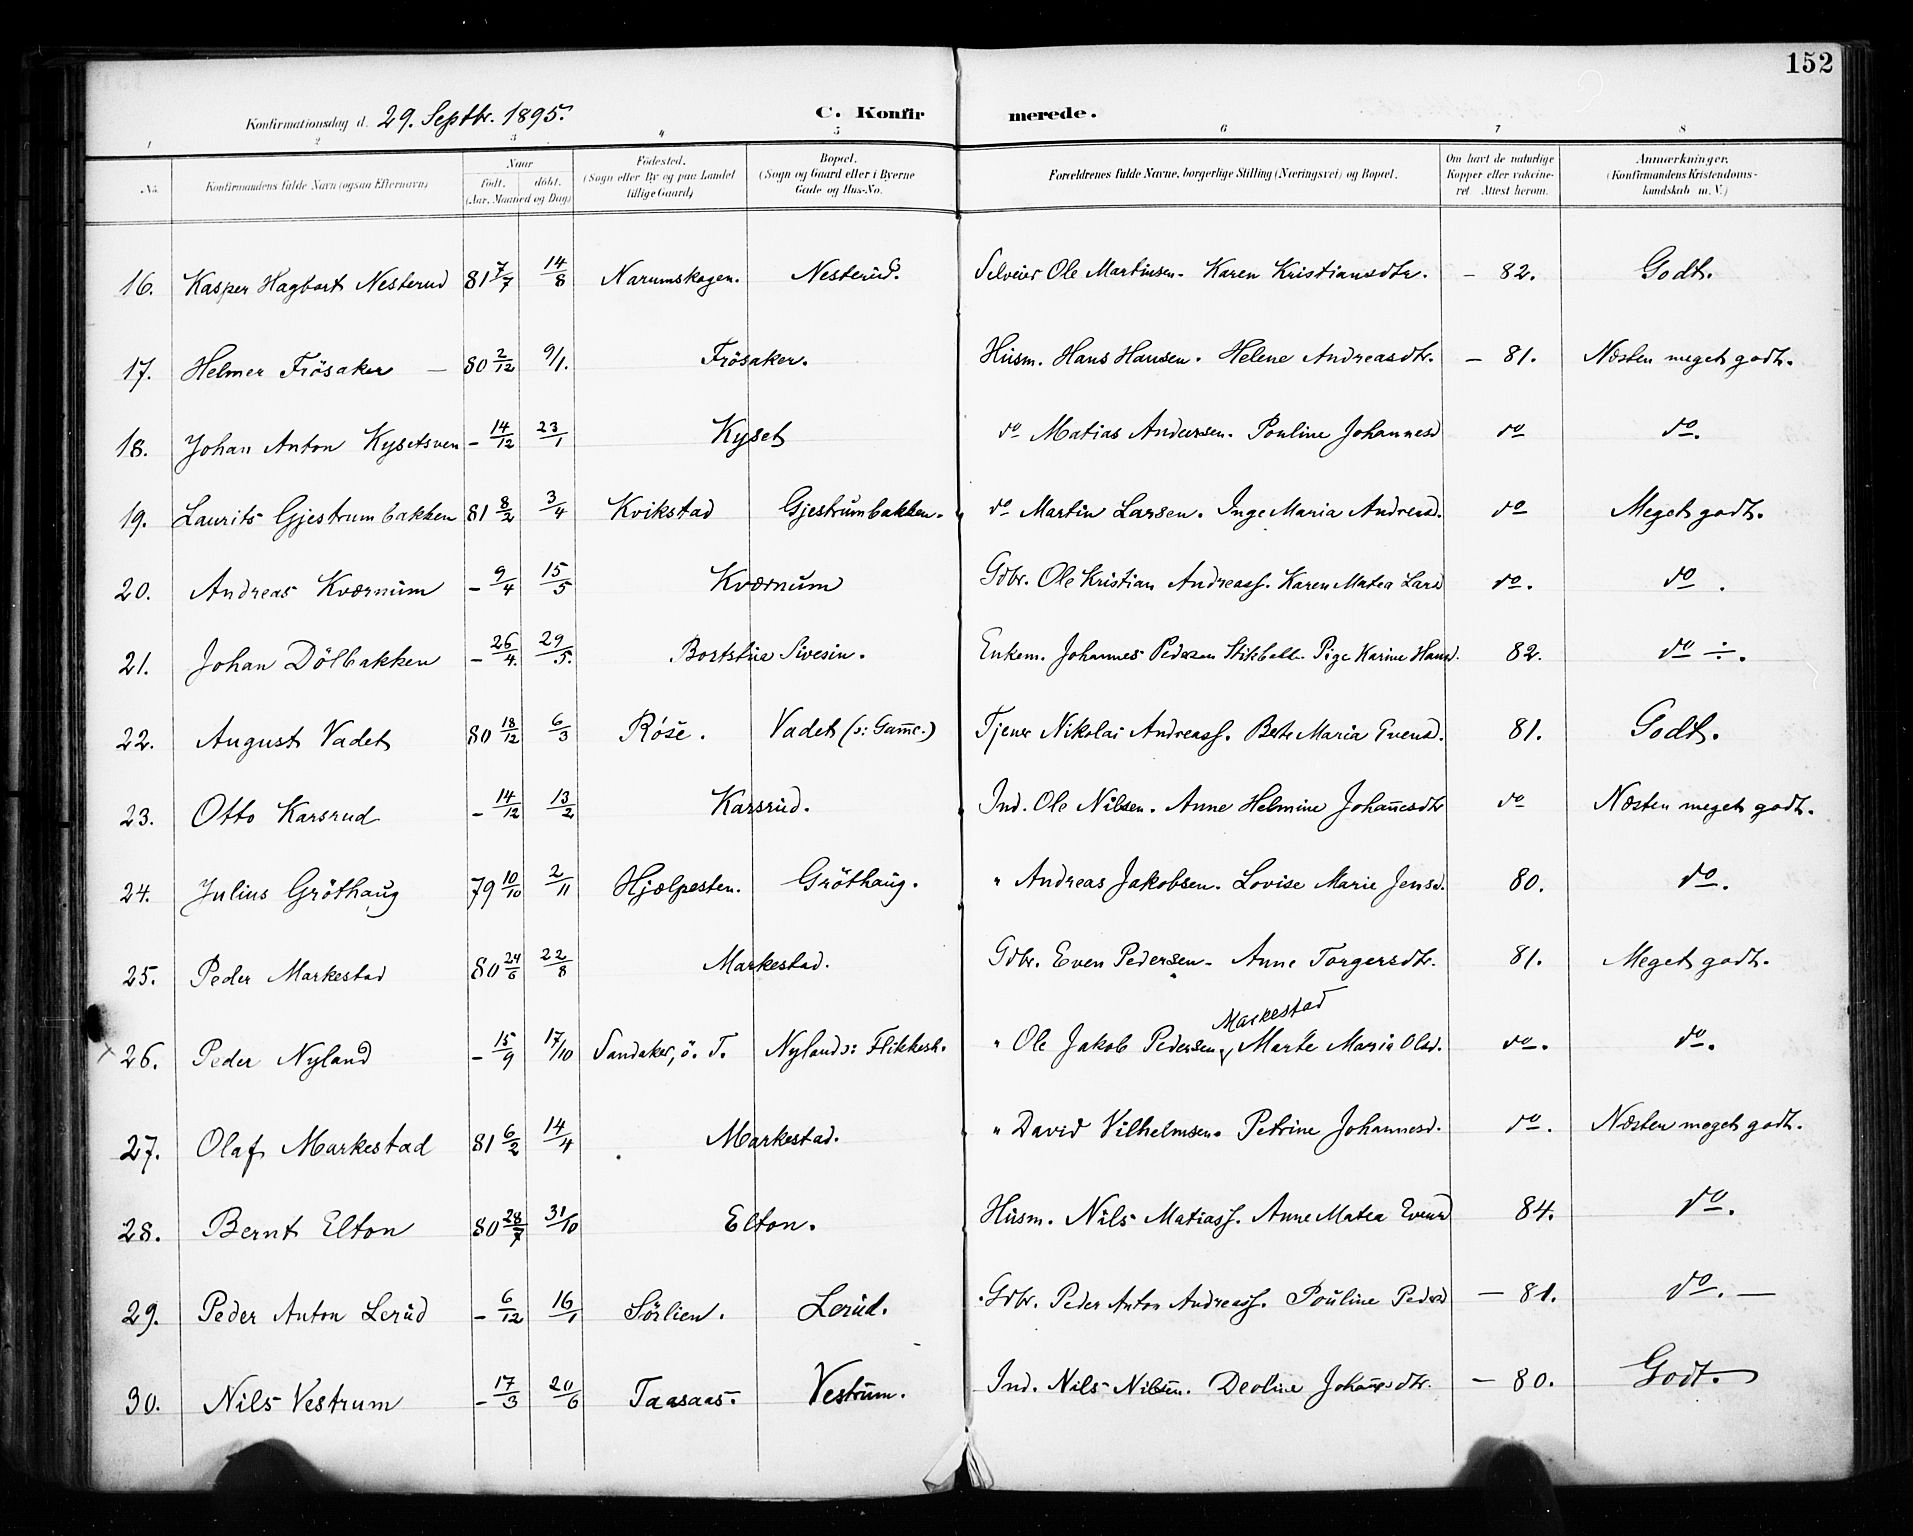 152
Konfirmationsdag d. 29. Septbr. 1895. C. Konfirmerede.
1 2 3 4 5 6 7 8
No. Konfirmandens fulde Navn (ogsaa Efternavn) Naar født. døbt. (Aar, Maaned og Dag) Fødested. (Sogn eller By og paa Landet tillige Gaard) Bopæl. (Sogn og Gaard eller i Byerne Gade og Hus-No. Forældrenes fulde Navne, borgerlige Stilling (Næringsvei) og Bopæl. Om havt de naturlige Kopper eller vakcineret Attest herom. Anmærkninger. (Konfirmandens Kristendomskundskab m. V.)
16. Kasper Hagbart Nesterud 81 7/7 14/8 Narumskogen. Nesterud. Selveier Ole Martinsen. Karen Kristiansdtr. – 82. Godt.
17. Helmer Frösaker — 80 2/12 9/1. Frösaker. Husm. Hans Hansen. Helene Andreasdtr. – 81. Næsten meget godt.
18. Johan Anton Kysetsven – 14/12 23/1 Kyset do Matias Andersen. Pouline Johannesd do do.
19. Laurits Gjestrumbakken 81 8/2 3/4 Kvikstad Gjestrumbakken. do Martin Larsen. Inge Maria Andreasd. do Meget godt.
20. Andreas Kværnum – 9/4 15/5 Kværnum Gdbr. Ole Kristian Andreass. Karen Matea Larsd do. do.
21. Johan Dölbakken – 26/4. 29/5. Bortstue Sivesin. Enkem. Johannes Pedersen Stikball. Pige Karine Hansd. 82. do ÷.
22. August Vadet 80 18/12 6/3 Röse. Vadet (ɔ: Game.) Tjener Nikolai Andreass. Berte Maria Evensd. 81. Godt.
23. Otto Karsrud – 14/12 13/2 Karsrud. Ind. Ole Nilsen. Anne Helmine Johanesdtr do Næsten meget godt.
24. Julius Gröthaug 79 10/10 2/11 Hjælpesten. Gröthaug. " Andreas Jakobsen. Lovise Marie Jensd. 80. do.
25. Peder Markestad 80 24/6 22/8 Markestad. Gdbr. Even Pedersen. Anne Torgersdtr. 81. Meget godt.
Markestad
26. Peder Nyland – 15/9 17/10 Sandaker, ö. T. Nyland ɔ: Flikkesh. " Ole Jakob Pedersen, Marte Maria Olsd. do. do.
27. Olaf Markestad 81 6/2 14/4 Markestad. " David Vilhelmsen. Petrine Johannesd. do. Næsten meget godt.
28. Bernt Elton 80 28/7 31/10 Elton. Husm. Nils Matiass. Anne Matea Evensd 84. do.
29. Peder Anton Lerud – 6/12 16/1 Sörlien. Lerud. Gdbr. Peder Anton Andreass. Pouline Pedersd – 81. do. —
30. Nils Vestrum – 17/3 20/6 Taasaas. Vestrum. Ind. Nils Nilsen. Deoline Johanesdtr. – 80. Godt.